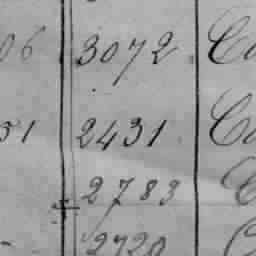 06 3072 Ca
51 2431 Ca
2783 C
2720 C